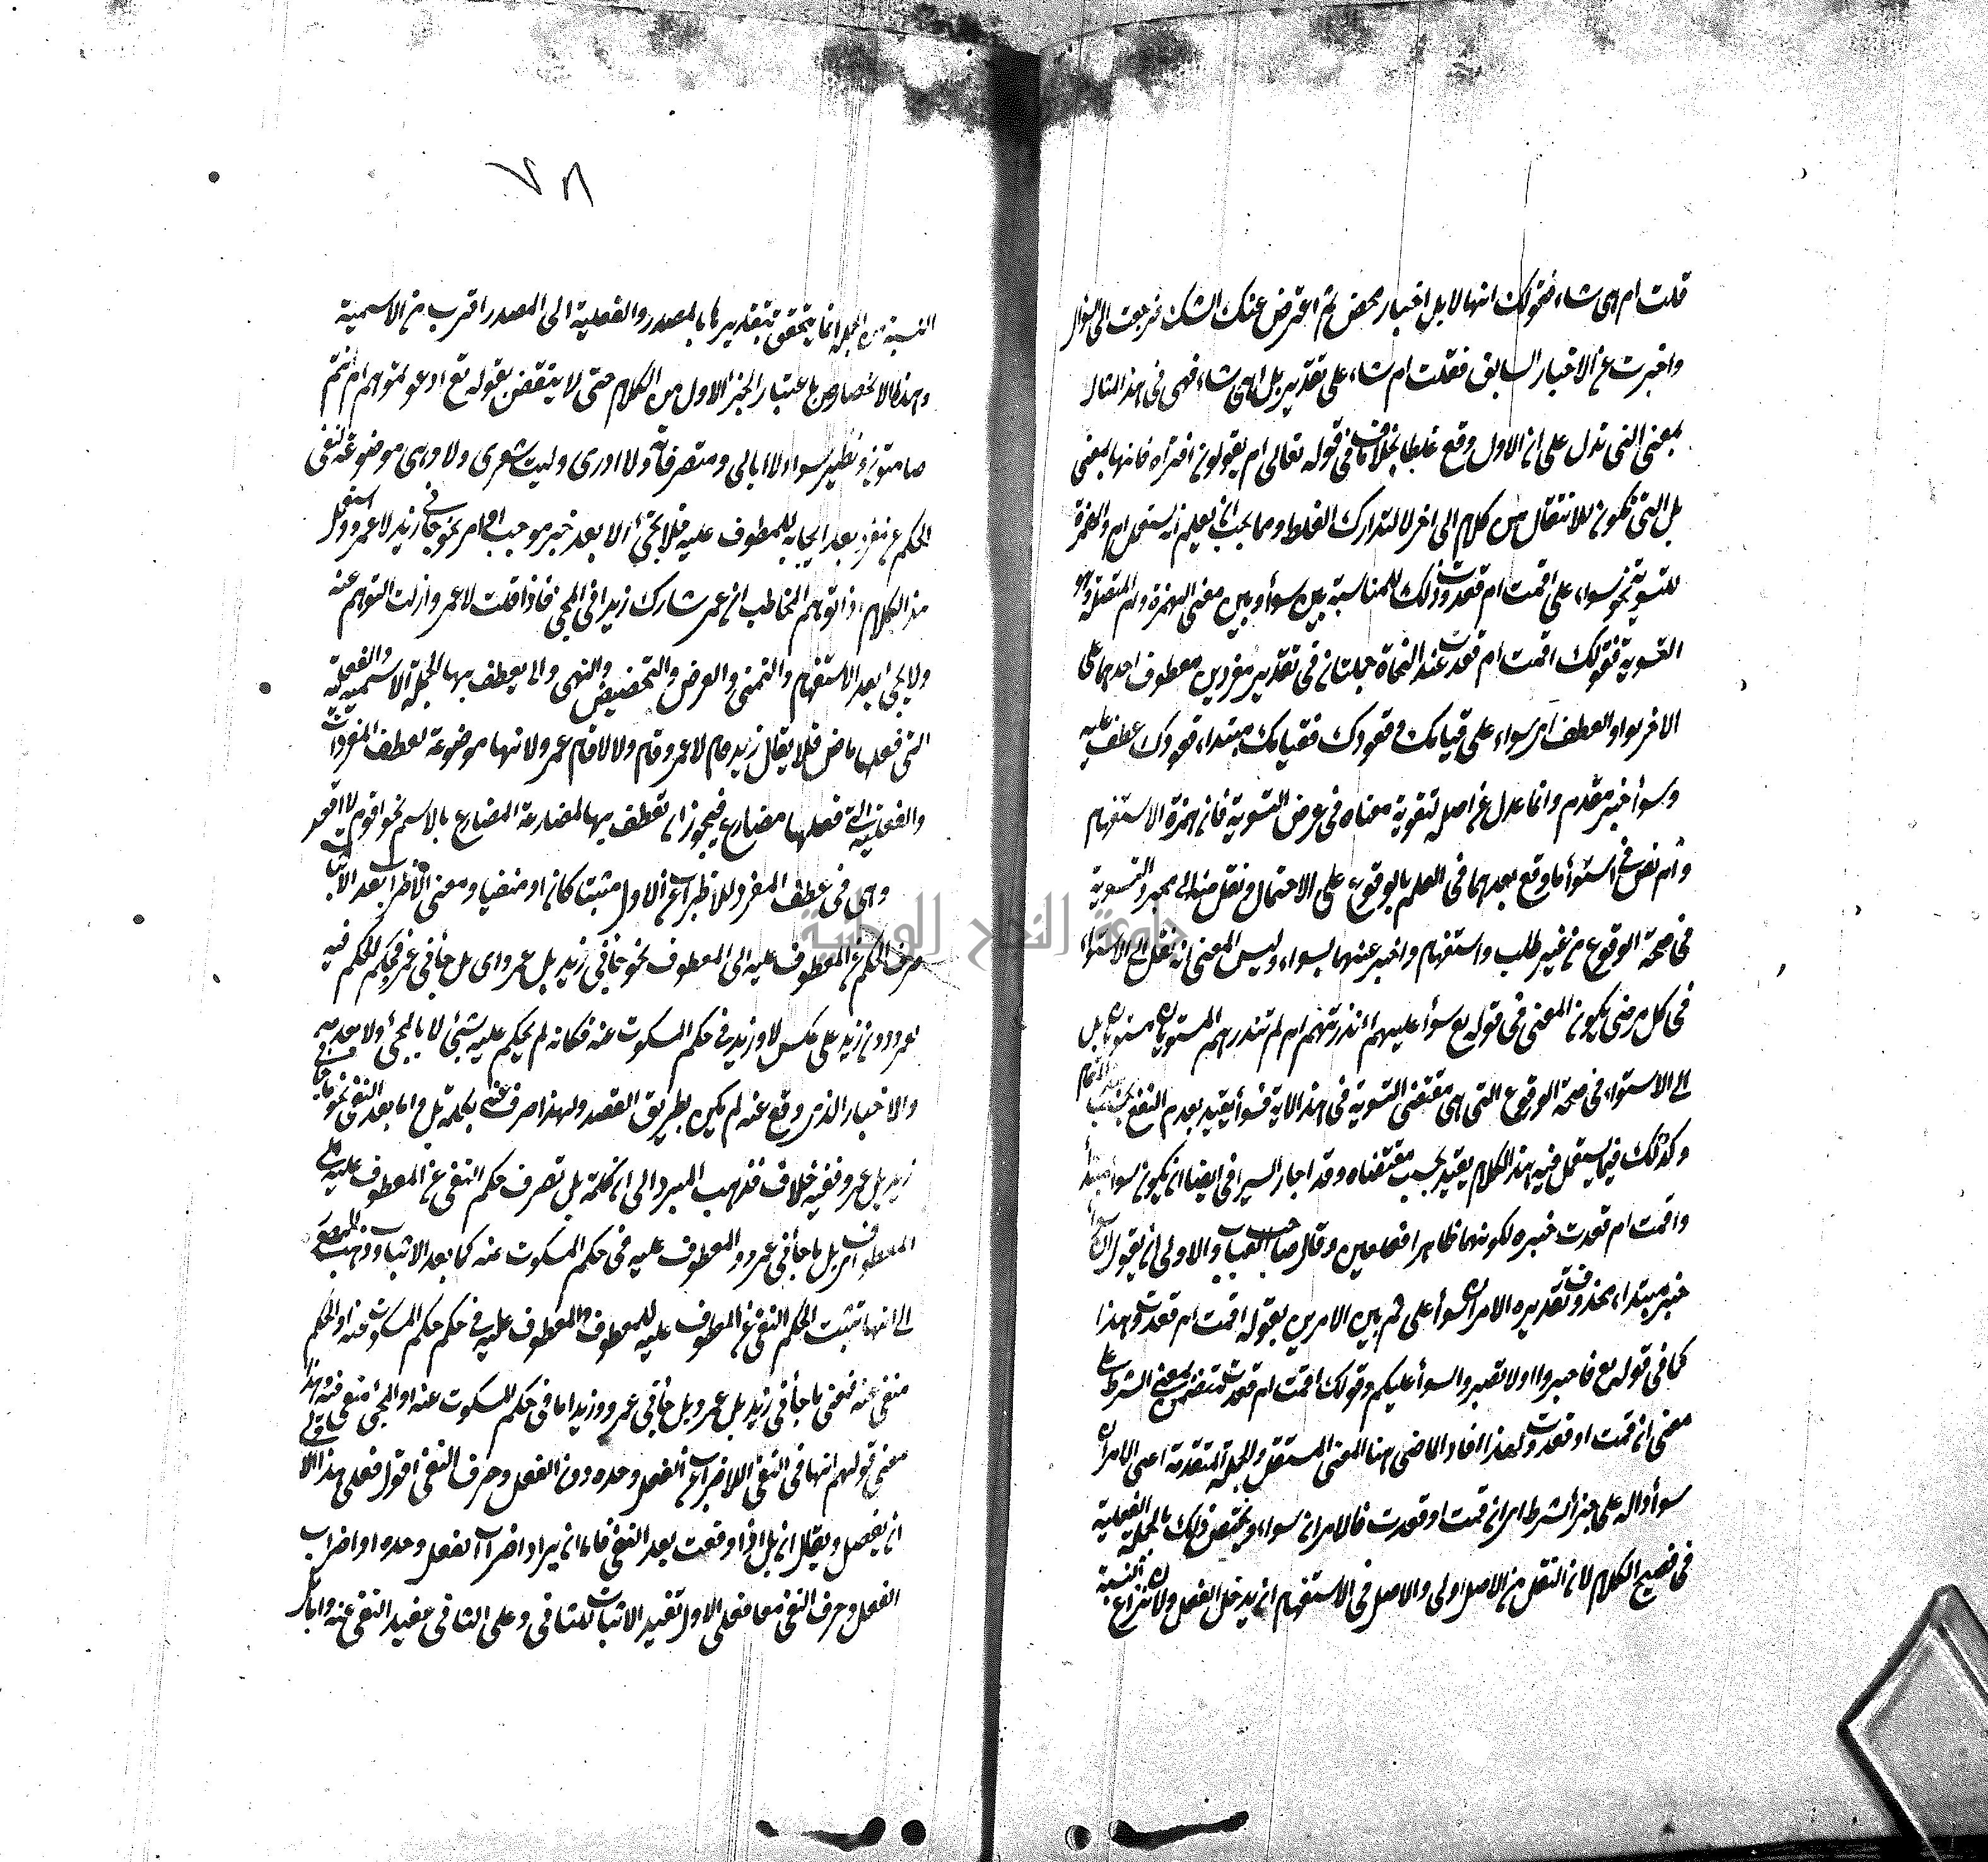 قلت ام هى شاء فقولك انها لابل اخبار محض ثم اعترض عنك الشك فرجعت الى السؤال
واخبرت عن الاخبار السابق فقلت ام شاء على تقدير بل اهى شاء فهى فى هذا المثال
بمعنى التى تدل على ان الاول وقع غلطا بخلاف ما فى قوله تعالى ام يقولون افتراه فانها بمعنى
بل التى تكون للانتقال من كلام الى اخر لا لتدارك الغلط ومما يجب ان يعلم انه يستعمل ام والهمزة
للتسوية نحو سواء على اقمت ام قعدت وذلك للمناسبة بين سوأ وبين معنى الهمزة وام المتصلة وهو
التسوية فقولك اقمت ام قعدت عند النحاة جملتان فى تقدير مفردين معطوف احدهما على
الاخر بواو العطف اى سواء على قيامك وقعودك فقيامك مبتداء وقعودك عطف عليه
وسوأ خبر مقدم وانما عدل عن اصله لتقوية معناه فى عرض التسوية فان همزة الاستفهام
وام نص فى استوأ ما وقع بعدهما فى العلم بالوقوع على الاحتمال ونقل منه الى مجرد التسوية
فى صحة الوقوع من غير طلب واستفهام واخبر عنهما بسواء وليس المعنى انه نقل الى الاستوا
فى كل مرضى يكون المعنى فى قوله تع سوأ عليهم أانذرتهم ام لم تنذرهم المستويان مستويان بل
الى الاستواء فى صحة الوقوع التى هى مقتضى التسوية فى هذه الاية فسوأ يقيد بعدم النفع بحسب المقام
وكذلك فيما يستعمل فيه هذا الكلام يقيد بحسب مقتضاه وقد اجاز السيرافى ايضا ان يكون سوأ مبتدأ
واقمت ام قعدت خبره لكونهما ظاهرا فعلين وقال صاحب العباب والاولى ان يقول ان سوأ
خبر مبتداء محذوف تقديره الامران سوأ على ثم بين الامرين بقوله اقمت ام قعدت وهذا
كما فى قوله تع فاصبروا اولا تصبروا سوأ عليكم وقولك اقمت ام قعدت متضمن لمعنى الشرط على
معنى ان قمت او قعدت ولهذا افاد الماضى هنا المعنى المستقل والجملة المتقدمة اعنى الامران
سوأ دالة على جزأ الشرط اى ان قمت او قعدت فالامران سواء ويختص ذلك بالجملة الفعلية
فى فصيح الكلام لان النقل من الاصل اولى والاصل فى الاستفهام ان يدخل الفعل ولان انتزاع النسبة
٧٨
النسبة من الجملة انما يتحقق بتقديرها بالمصدر والفعلية الى المصدر اقرب من الاسمية
وهذا الاختصاص باعتبار الجزء الاول من الكلام حتى لا ينتقض بقوله تع ادعوتموهم ام انتم
صامتون ونظير سواء لا ابالى ومتصرفاته ولا ادرى وليت شعرى ولا وهى موضوعة لنفى
الحكم عن مفرد بعد ايجابه للمعطوف عليه فلا يجئ الا بعد خبر موجب او امر نحو جأنى زيد لا عمرو ويستعمل
هذا الكلام اذا توهم المخاطب ان عمر شارك زيدا فى المجئ فاذا قلت لا عمرو ازلت التوهم عنه
ولا يجئ بعد الاستفهام والتمنى والعرض والتحضيض والنهى ولا يعطف بها الجملة الاسمية والفعلية
التى فعلها ماض فلا يقال زيد قام لا عمرو قام ولا لا قام عمرو لانها موضوعة لعطف المفردات
والفعلية التى فعلها مضارع فيجوز ان تعطف بها لمضارعة المضارع بالاسم نحو اقوم لا اقعد
وهى فى عطف المفرد للاضراب عن الاول مثبتا كان او منفيا ومعنى الاضراب بعد الاثبات
صرف الحكم عن المعطوف عليه الى المعطوف نحو جأنى زيد بل عمرو اى بل جأنى عمرو فحكم الحكم فيه
لعمرو دون زيد على عكس لا وزيد فى حكم المسكوت عنه فكانه لم يحكم عليه بشئ لا بالمجئ ولا بعدمه
والاخبار الذى وقع عنه لم يكن بطريق القصد ولهذا صرف عنه بكلمة بل واما بعد النفى نحو ما جأنى
زيد بل عمرو ففيه خلاف فذهب المبرد الى ان كلمة بل تصرف حكم النفى عن المعطوف عليه الى
المعطوف اى بل ما جأنى عمرو والمعطوف عليه فى حكم المسكوت عنه كما بعد الاثبات وذهب
الى انها تثبت الحكم النفى عن المعطوف عليه للمعطوف والمعطوف عليه فى حكم المسكوت عنه او الحكم
منفى عنه فمعنى ما جأنى زيد بل عمرو بل جأنى عمرو وزيد اما فى حكم المسكوت عنه او المجئ منفى عنه وهذا
معنى قولهم انها فى النفى للاضراب عن الفعل وحده دون الفعل وحرف النفى اقول فعلى هذا
ان يفصل ويقال ان بل اذا وقعت بعد النفى فاما ان يراد اضراب الفعل وحده او اضراب
الفعل وحرف النفى معا فعلى الاول تفيد الاثبات للثانى وعلى الثانى تفيد النفى عنه